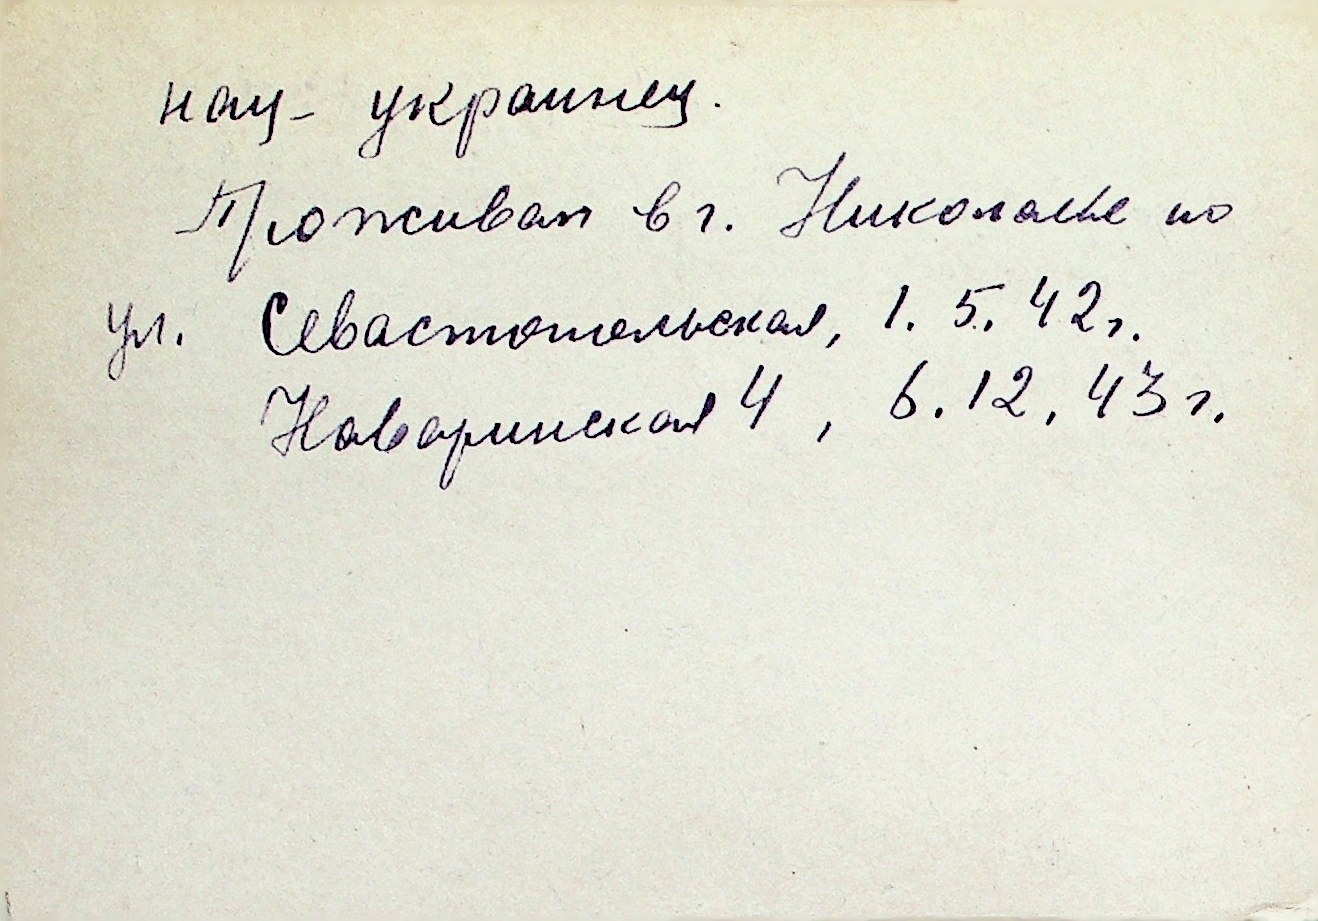 нац- украинец.
Проживал в г. Николаеве по
ул. Севастопольская, 1.5.42г.
Наваринская 4, 6.12.43г.